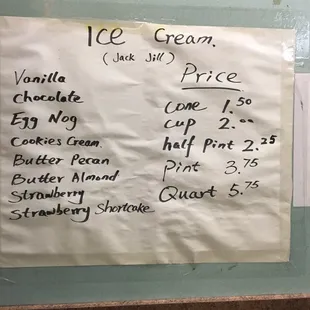 Ice Cream.
(Jack Jill)
Vanilla
Chocolate
Egg Nog
Cookies Cream
Butter Pecan
Butter Almond
Strawberry
Strawberry Shortcake
Price
Cone 1.50
Cup 2.00
half Pint 2.25
Pint 3.75
Quart 5.75